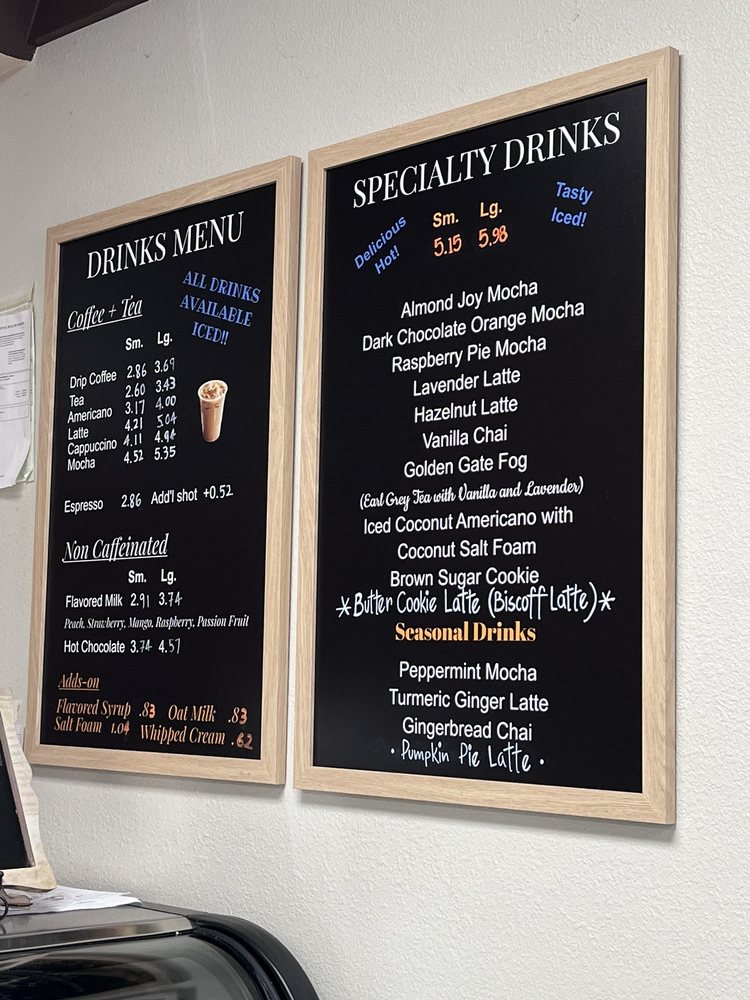 DRINKS MENU
ALL DRINKS
AVAILABLE
ICED!!
Coffee + Tea
Sm. Lg.
Drip Coffee 2.86 3.69
Tea 2.60 3.43
Americano 3.17 4.00
Latte 4.21 5.04
Cappuccino 4.11 4.94
Mocha 4.52 5.35
Espresso 2.86 Add'l shot +0.52
Non Caffeinated
Sm. Lg.
Flavored Milk 2.91 3.74
Peach, Strawberry, Mango, Raspberry, Passion Fruit
Hot Chocolate 3.74 4.57
Adds-on
Flavored Syrup .83 Oat Milk .83
Salt Foam 1.04 Whipped Cream .62
SPECIALTY DRINKS
Delicious
Hot!
Sm. Lg.
5.15 5.98
Tasty
Iced!
Almond Joy Mocha
Dark Chocolate Orange Mocha
Raspberry Pie Mocha
Lavender Latte
Hazelnut Latte
Vanilla Chai
Golden Gate Fog
(Earl Grey Tea with Vanilla and Lavender)
Iced Coconut Americano with
Coconut Salt Foam
Brown Sugar Cookie
*Butter Cookie Latte (Biscoff Latte)*
Seasonal Drinks
Peppermint Mocha
Turmeric Ginger Latte
Gingerbread Chai
• Pumpkin Pie Latte •